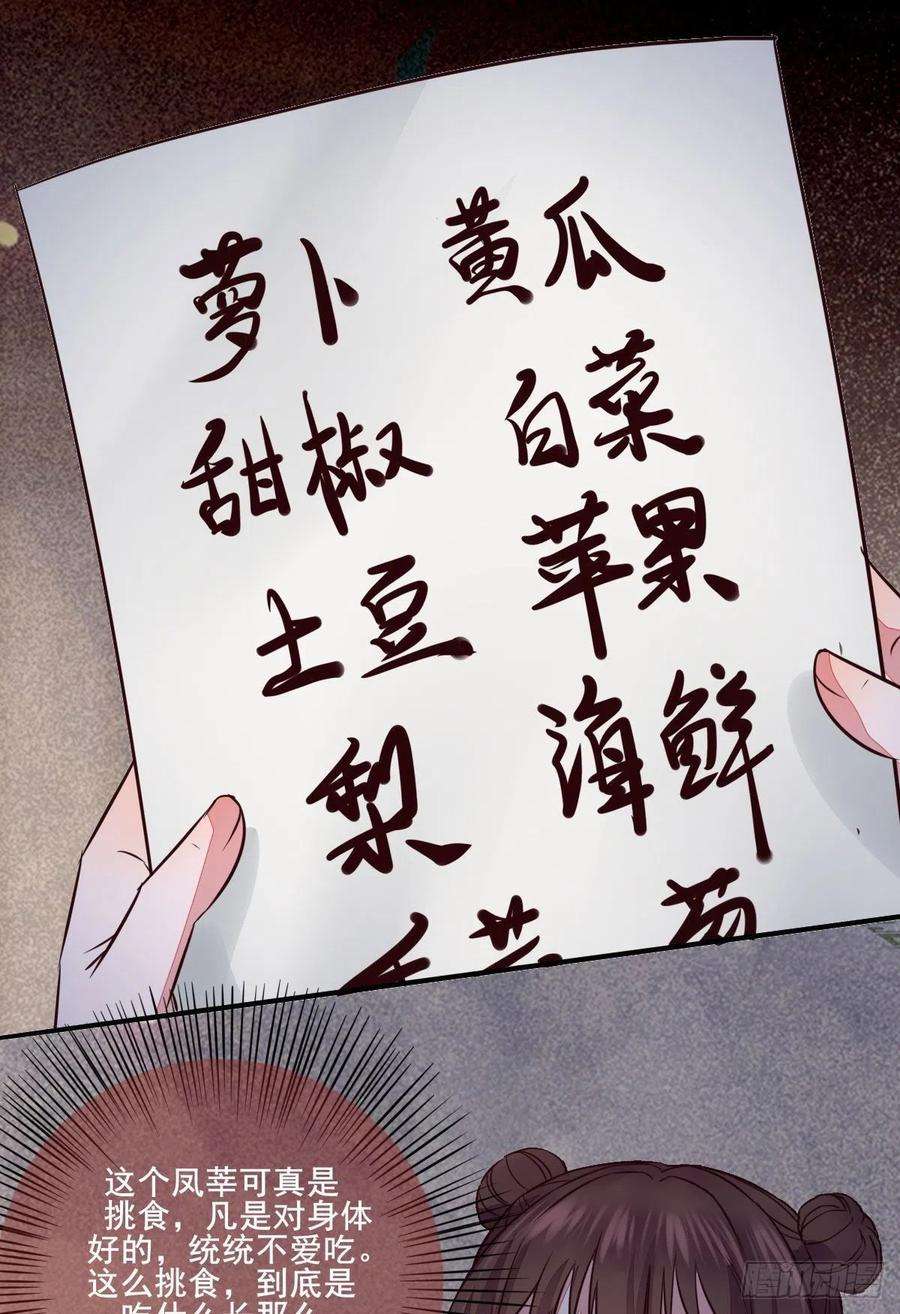 萝卜 黄瓜
甜椒 白菜
土豆 苹果
梨 海鲜
这个凤莘可真是
挑食，凡是对身体
好的，统统不爱吃。
这么挑食，到底是
吃什么长那么